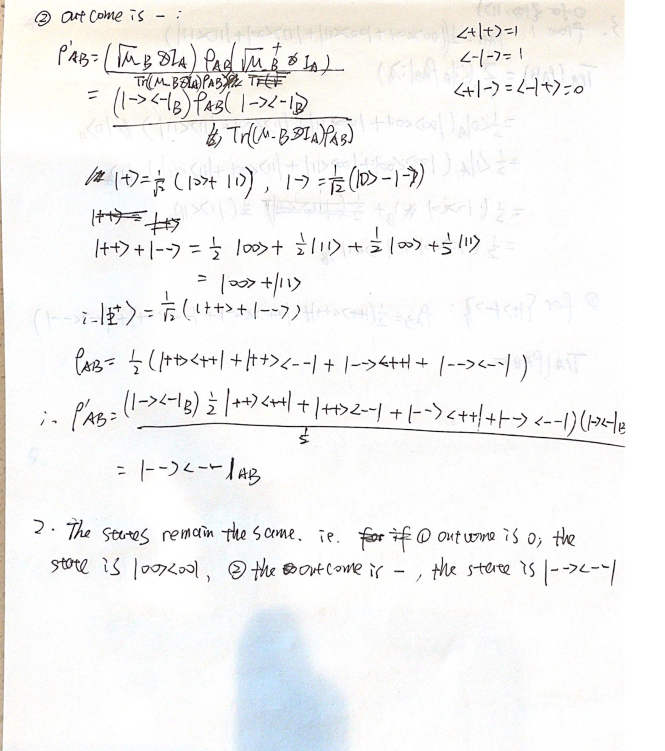 ② outcome is - :
<+|+>=1
<-|->=1
<+|->=<-|+>=0
ρ'AB = (√M-B ⊗ IA) ρAB (√M-B† ⊗ IA)
Tr((M-B⊗IA)ρAB)
= (|-><-|B) ρAB (|-><-|B)
Tr((M-B⊗IA)ρAB)
|+> = 1/√2 (|0>+|1>), |-> = 1/√2 (|0>-|->)
|++>+|--> = 1/2 |00> + 1/2 |11> + 1/2 |00> + 1/2 |11>
= |00>+|11>
∴ |Φ+> = 1/√2 (|++>+|-->)
ρAB = 1/2 (|++><++| + |++><--| + |--><++| + |--><--|)
∴ ρ'AB = (|-><-|B) 1/2 |++><++| + |++><--| + |--><++| + |--><--|) (|-><-|B
1/2
= |--><--|AB
2. The states remain the same. ie. ① outcome is 0, the
state is |00><00|, ② the outcome is -, the state is |--><--|